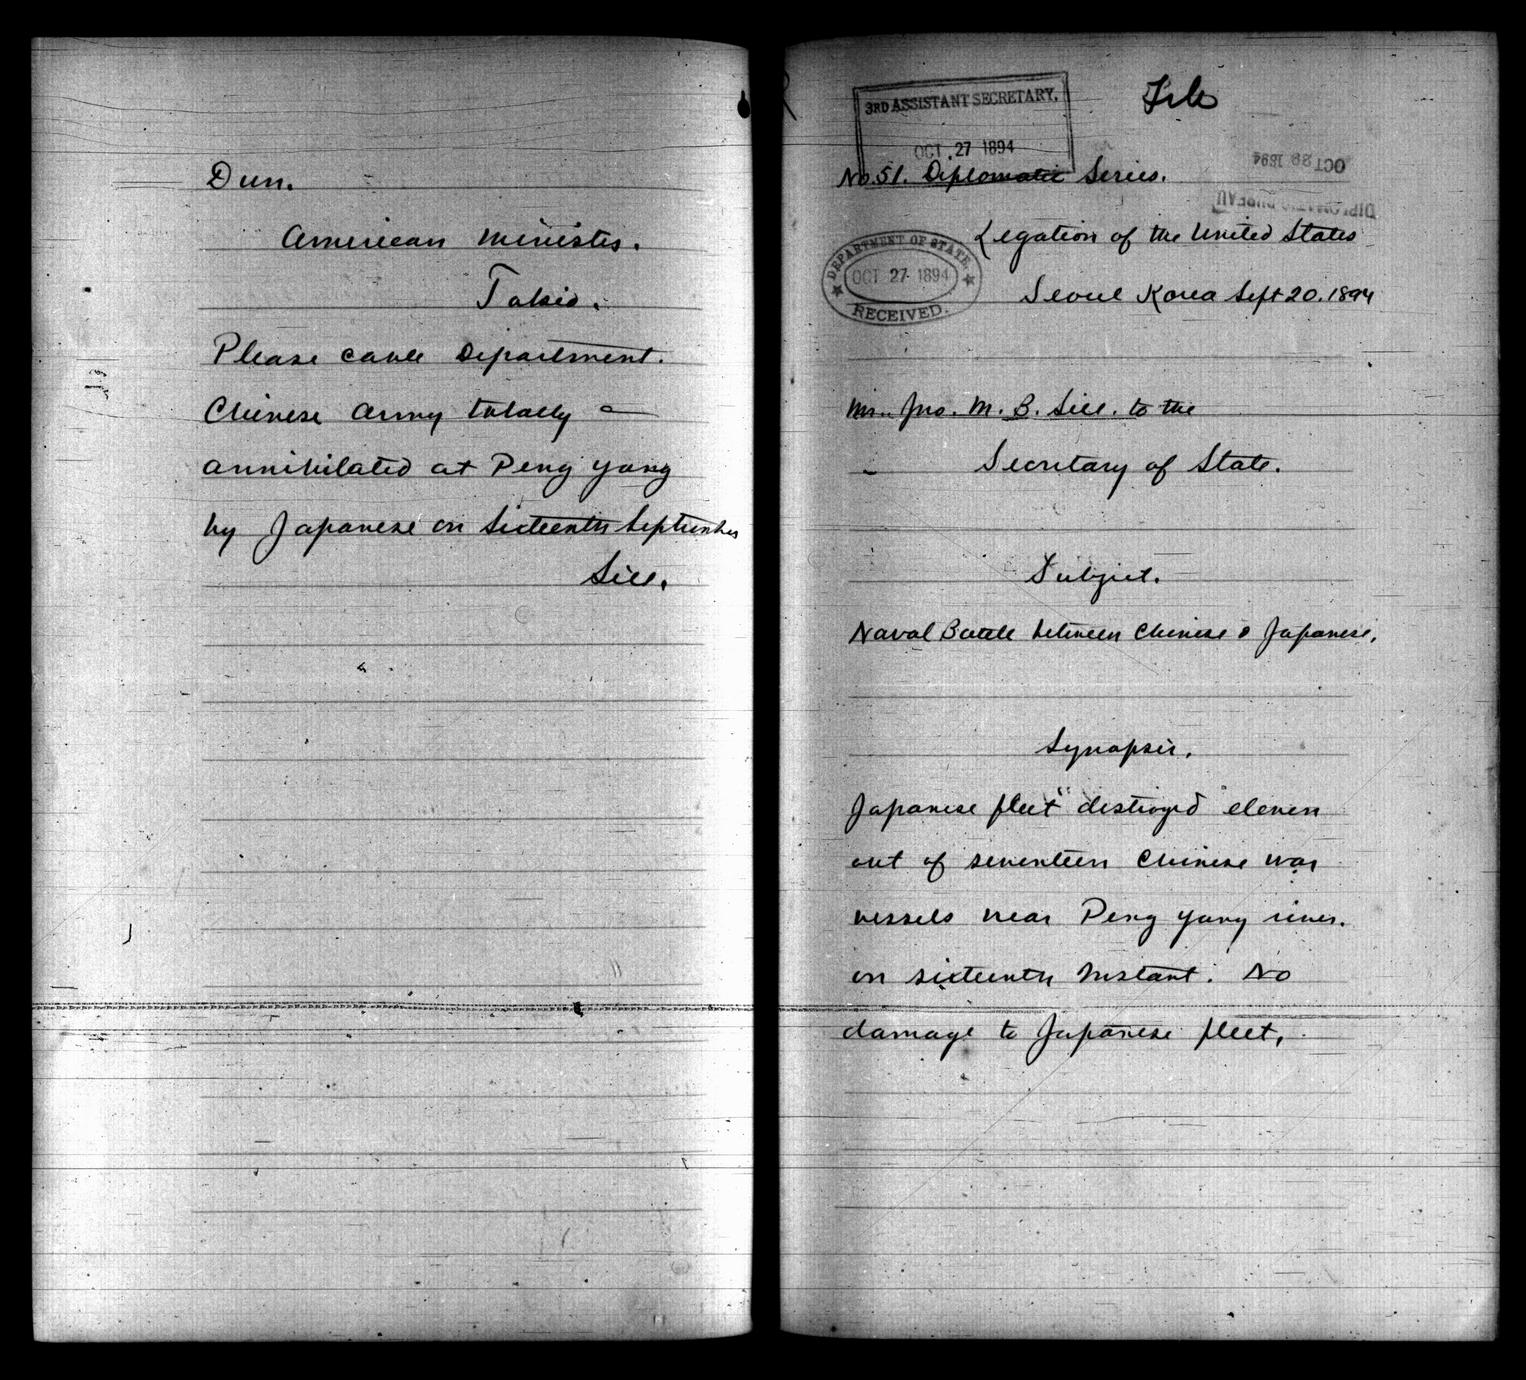 Dun.
American Minister.
Tokio.
Please cable Department.
Chinese army totally
annihilated at Peng Yang
by Japanese on Sixteenth September
Sill.
File
3RD ASSISTANT SECRETARY.
OCT 27 1894
No. 51. Diplomatic Series.
OCT 29 1894
DIPLOMATIC BUREAU
Legation of the United States
DEPARTMENT OF STATE.
OCT 27 1894
RECEIVED.
Seoul Korea Sept 20. 1894
Mr. Jno. M. B. Sill. to the
Secretary of State.
Subject.
Naval Battle between Chinese & Japanese.
Synopsis.
Japanese fleet destroyed eleven
out of seventeen Chinese war
vessels near Peng Yang river.
on sixteenth Instant. No
damage to Japanese fleet.